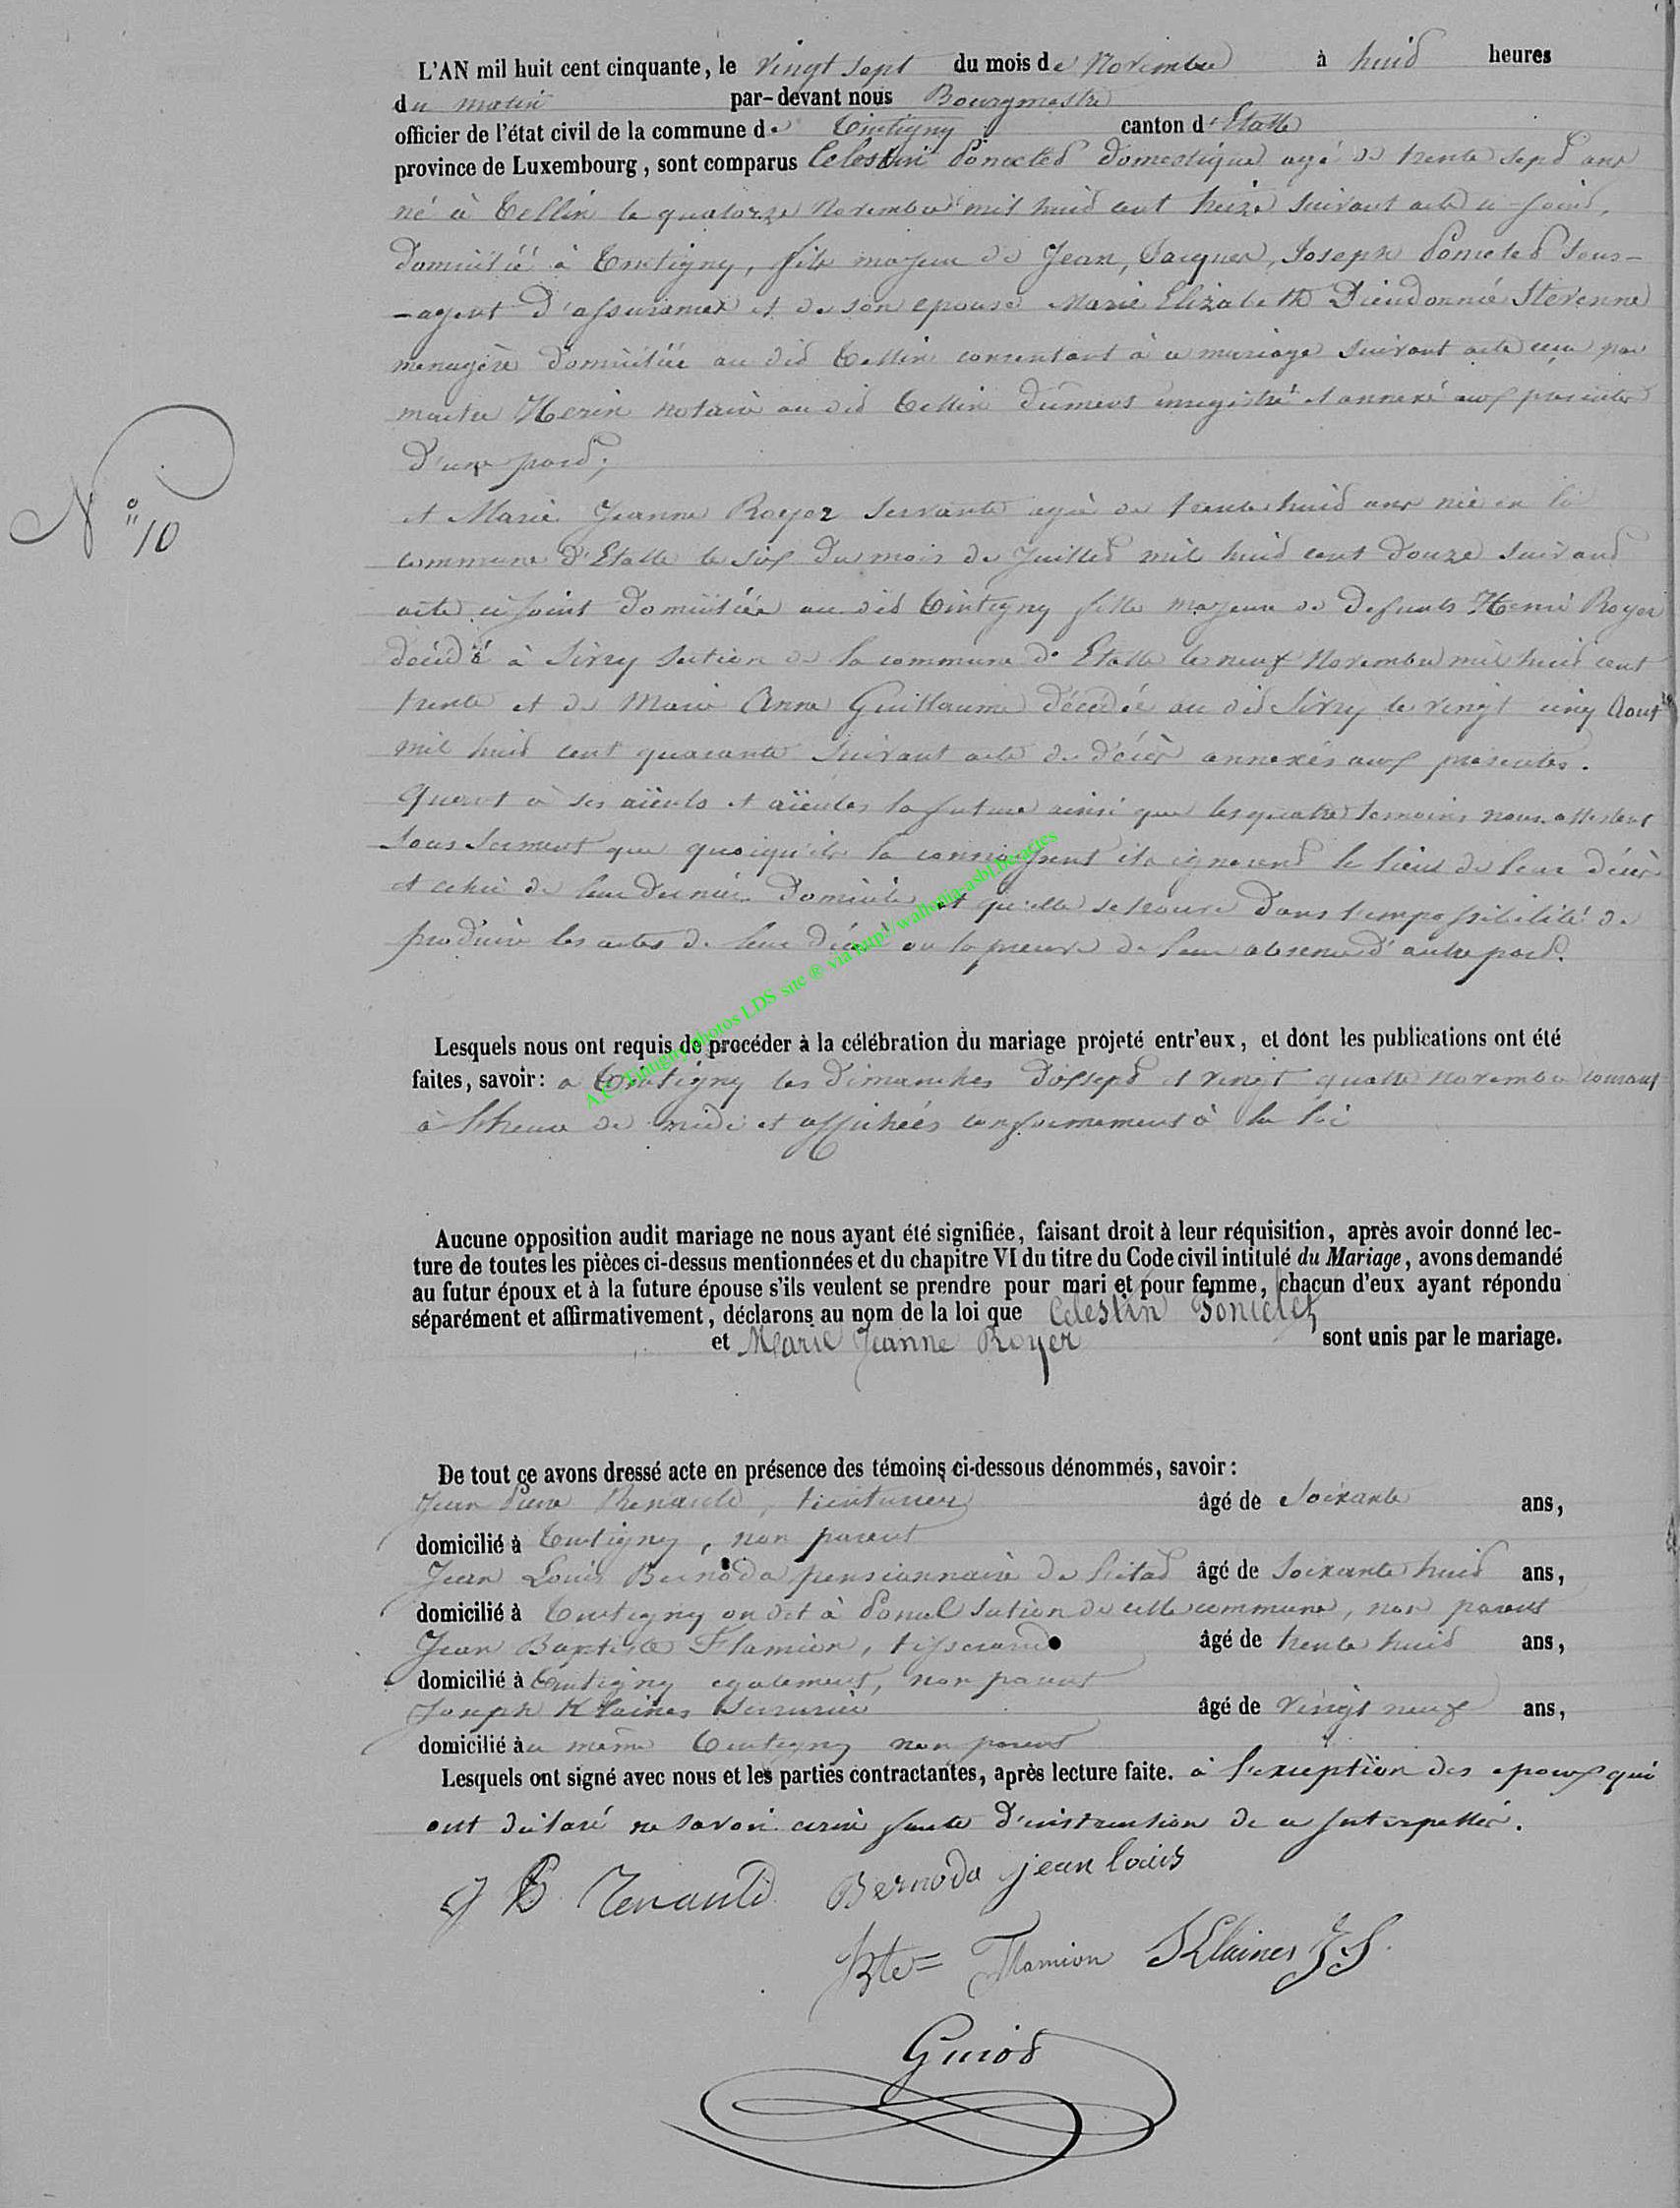 L'AN mil huit cent cinquante, le vingt sept du mois de Novembre à huid heures
du matin par-devant nous Bourgmestre
officier de l'état civil de la commune de Tintigny canton d'Etalle
province de Luxembourg, sont comparus Celestin Poncelet domestique agé de trente sept ans
né à Tellin le quatorze Novembre mil huid cent treize suivant acte ci-joint,
domicilié à Tintigny, fils majeur de Jean, Jacques, Joseph Poncelet sous-
-agent d'assurances et de son epouse Marie Elizabeth Dieudonnée Stevenne
menagère domiciliée au dit Tellin consentant à ce mariage suivant acte reçu par
maitre Herin notaire au dit Tellin dument enregistré et annexé aux presentes
d'une part;
N° 10
et Marie Jeanne Royer servante agée de trente huid ans née en la
commune d'Etalle le six du mois de Juillet mil huid cent douze suivant
acte ci joint domiciliée au dit Tintigny fille majeure de defunts Henri Royer
décédé à Sivry section de la commune d'Etalle le neuf Novembre mil huid cent
trente et de Marie Anne Guillaume décédée au dit Sivry le vingt cinq Aout
mil huid cent quarante suivant acte de décès annexés aux presentes.
Quant à ses aïeuls et aïeules la future ainsi que les quatre temoins nous attestent
sous serment que quoiqu'ils la connaissent ils ignorent le lieu de leur décès
et celui de leur dernier domicile et qu'elle se trouve dans l'impossibilité de
produire les actes de leur décès ou la preuve de leur absence d'autre part.
A.C. Tintigny photos LDS site ® via http://wallonia-asbl.be/actes
Lesquels nous ont requis de procéder à la célébration du mariage projeté entr'eux, et dont les publications ont été
faites, savoir: a Tintigny les dimanches dix sept et vingt quatre novembre courant
à l'heure de midi et affichées conformement à la loi
Aucune opposition audit mariage ne nous ayant été signifiée, faisant droit à leur réquisition, après avoir donné lec-
ture de toutes les pièces ci-dessus mentionnées et du chapitre VI du titre du Code civil intitulé du Mariage, avons demandé
au futur époux et à la future épouse s'ils veulent se prendre pour mari et pour femme, chacun d'eux ayant répondu
séparément et affirmativement, déclarons au nom de la loi que Celestin Poncelet
et Marie Jeanne Royer sont unis par le mariage.
De tout ce avons dressé acte en présence des témoins ci-dessous dénommés, savoir:
Jean Renauld, teinturier âgé de soixante ans,
domicilié à Tintigny, non parent
Jean Louis Bernoda pensionnaire de l'etat âgé de soixante huid ans,
domicilié à Tintigny section de cette commune, non parent
Jean Baptiste Flamion, tisserand âgé de trente huid ans,
domicilié à Tintigny egalement, non parent
Joseph Klaines Serrurier âgé de vingt neuf ans,
domicilié au même Tintigny non parent
Lesquels ont signé avec nous et les parties contractantes, après lecture faite. à l'exception des epoux qui
ont déclaré ne savoir ecrire faute d'instruction de ce interpellés.
J P Renauld Bernoda jean louis
Bte= Flamion Klaines J S
Guiot